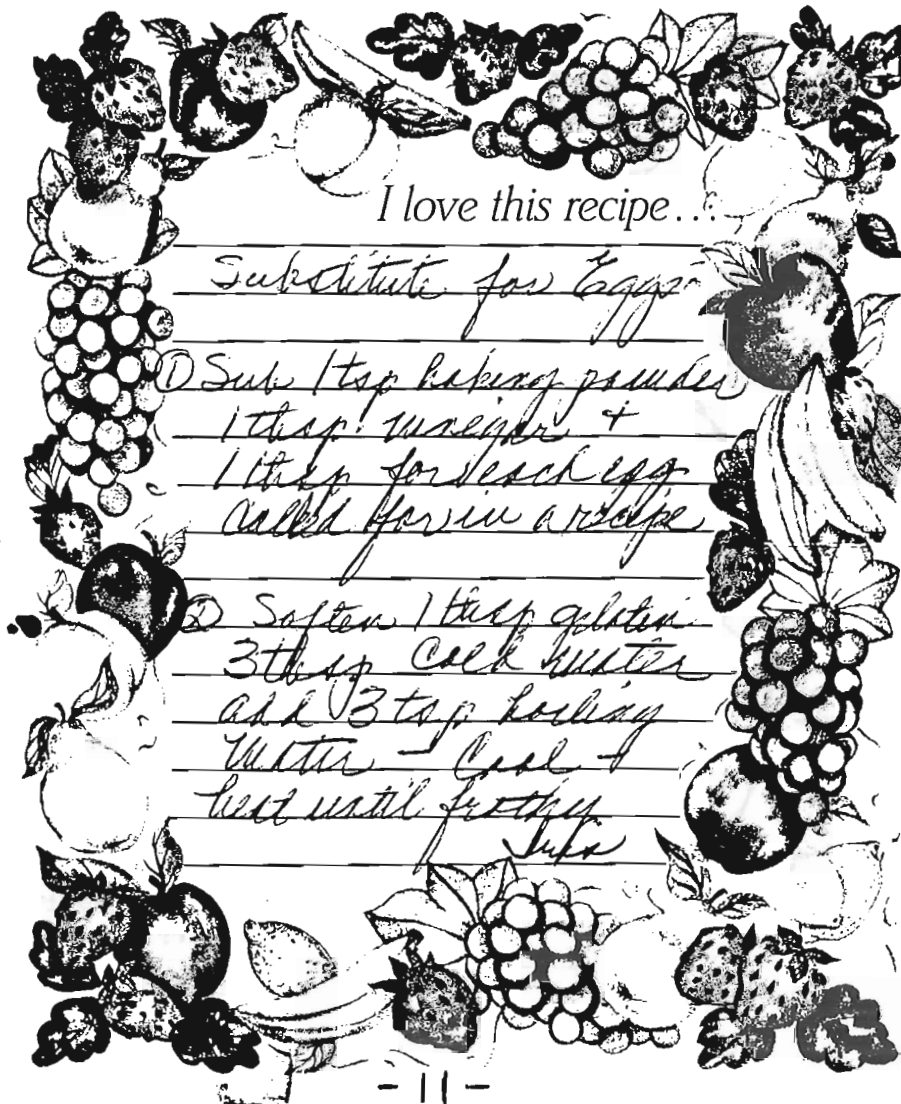 I love this recipe...
Substitute for Eggs
① Sub 1 tsp baking powder
1 tbsp. vinegar +
1 tbsp for each egg
called for in a recipe
② Soften 1 tbsp gelatin
3 tbsp cold water
add 3 tsp boiling
water – Cool +
beat until frothy
-11-